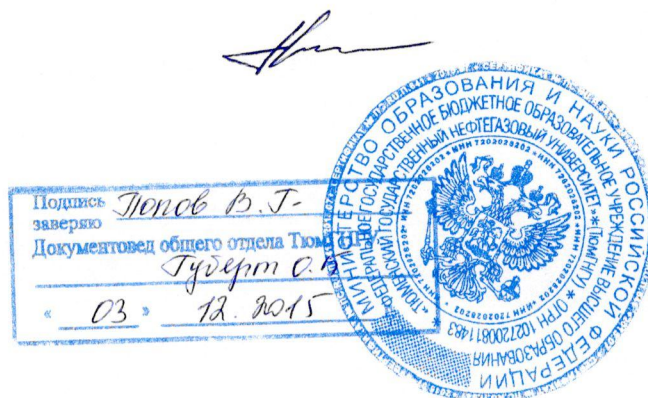 Подпись Попов В. Г.
заверяю
Документовед общего отдела
Губерт О.В
« 03 » 12. 2015
МИНИСТЕРСТВО ОБРАЗОВАНИЯ И НАУКИ РОССИЙСКОЙ ФЕДЕРАЦИИ
ФЕДЕРАЛЬНОЕ ГОСУДАРСТВЕННОЕ БЮДЖЕТНОЕ ОБРАЗОВАТЕЛЬНОЕ УЧРЕЖДЕНИЕ ВЫСШЕГО ОБРАЗОВАНИЯ
«ТЮМЕНСКИЙ ГОСУДАРСТВЕННЫЙ НЕФТЕГАЗОВЫЙ УНИВЕРСИТЕТ» * (ТюмГНГУ) * ОГРН 1027200811483
* ИНН 7202028202 * ИНН 7202028202 * ИНН 7202028202